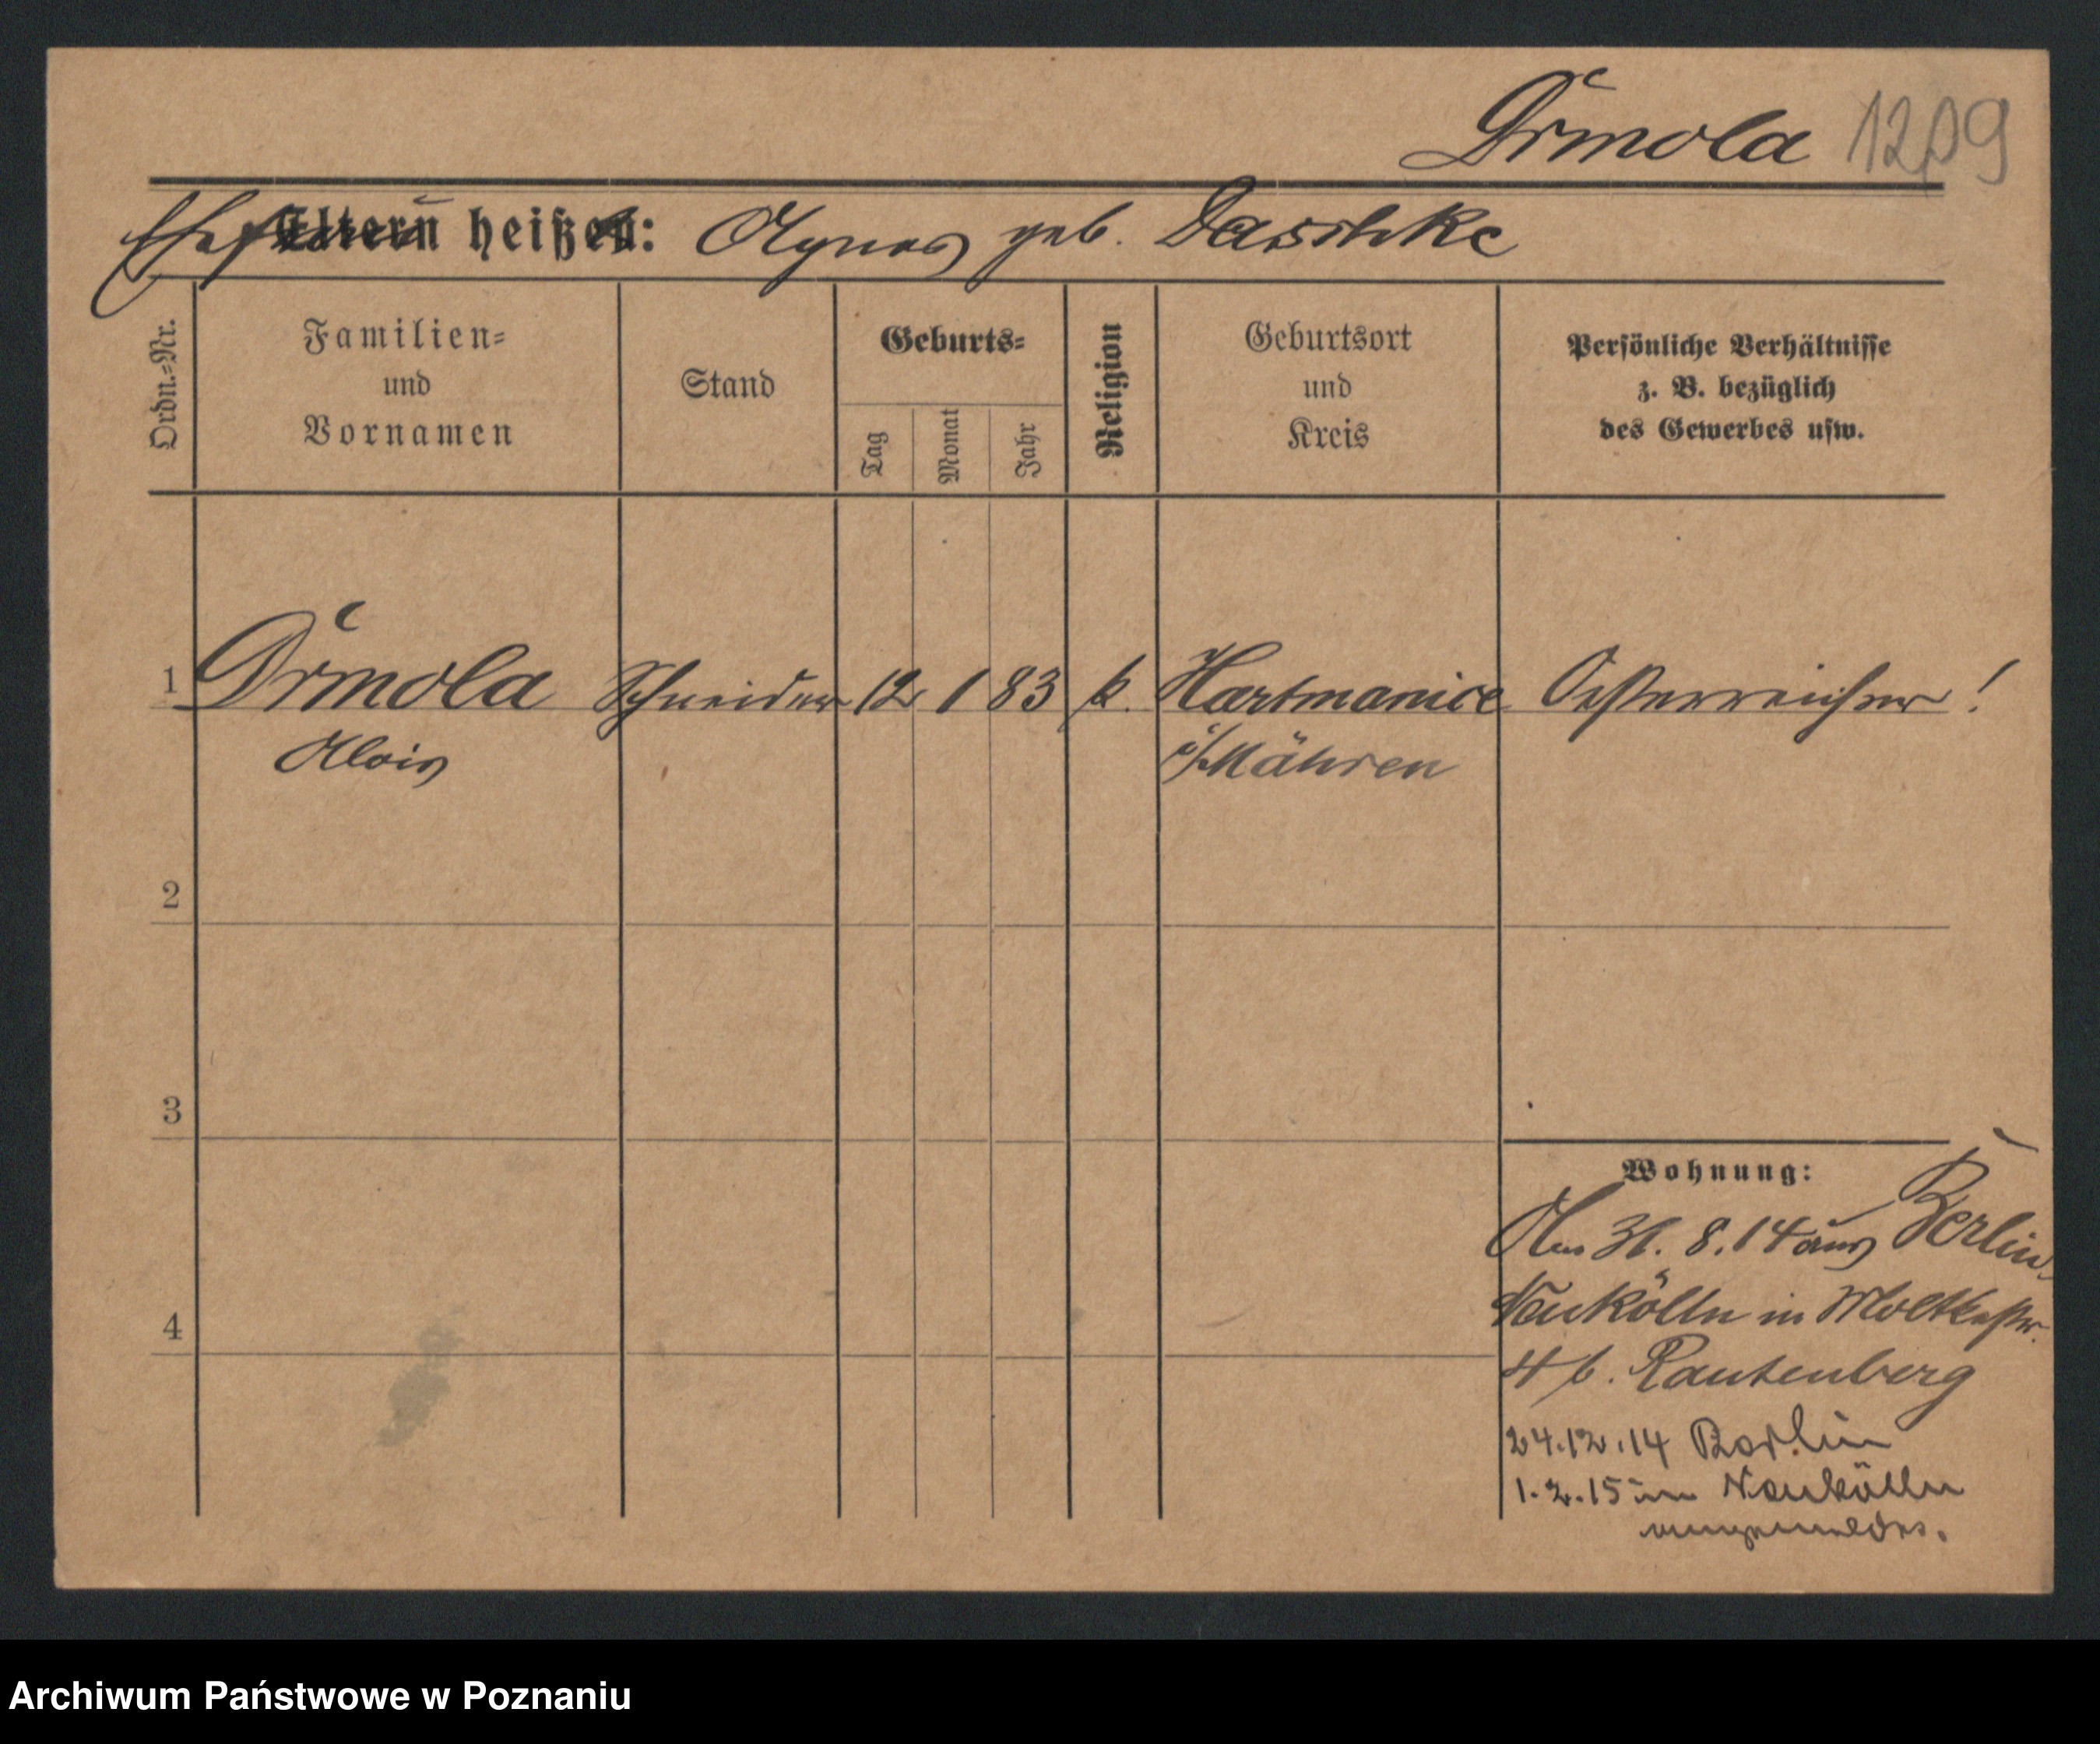 Dřmola 1209
Ehefrau heißt: Agnes geb. Daschke
Ordn.-Nr.
Familien-
und
Vornamen
Stand
Geburts-
Tag
Monat
Jahr
Religion
Geburtsort
und
Kreis
Persönliche Verhältnisse
z. B. bezüglich
des Gewerbes usw.
1 Dřmola Schneider 12 1 83 k. Hartmanice Oesterreicher!
Alois i/Mähren
2
3
Wohnung:
Am 31.8.14 aus Berlin-
Neukölln in Moltkestr.
4
4 b. Rautenberg
24.12.14 Berlin
1.2.15 in Neukölln
angemeldet.
Archiwum Państwowe w Poznaniu